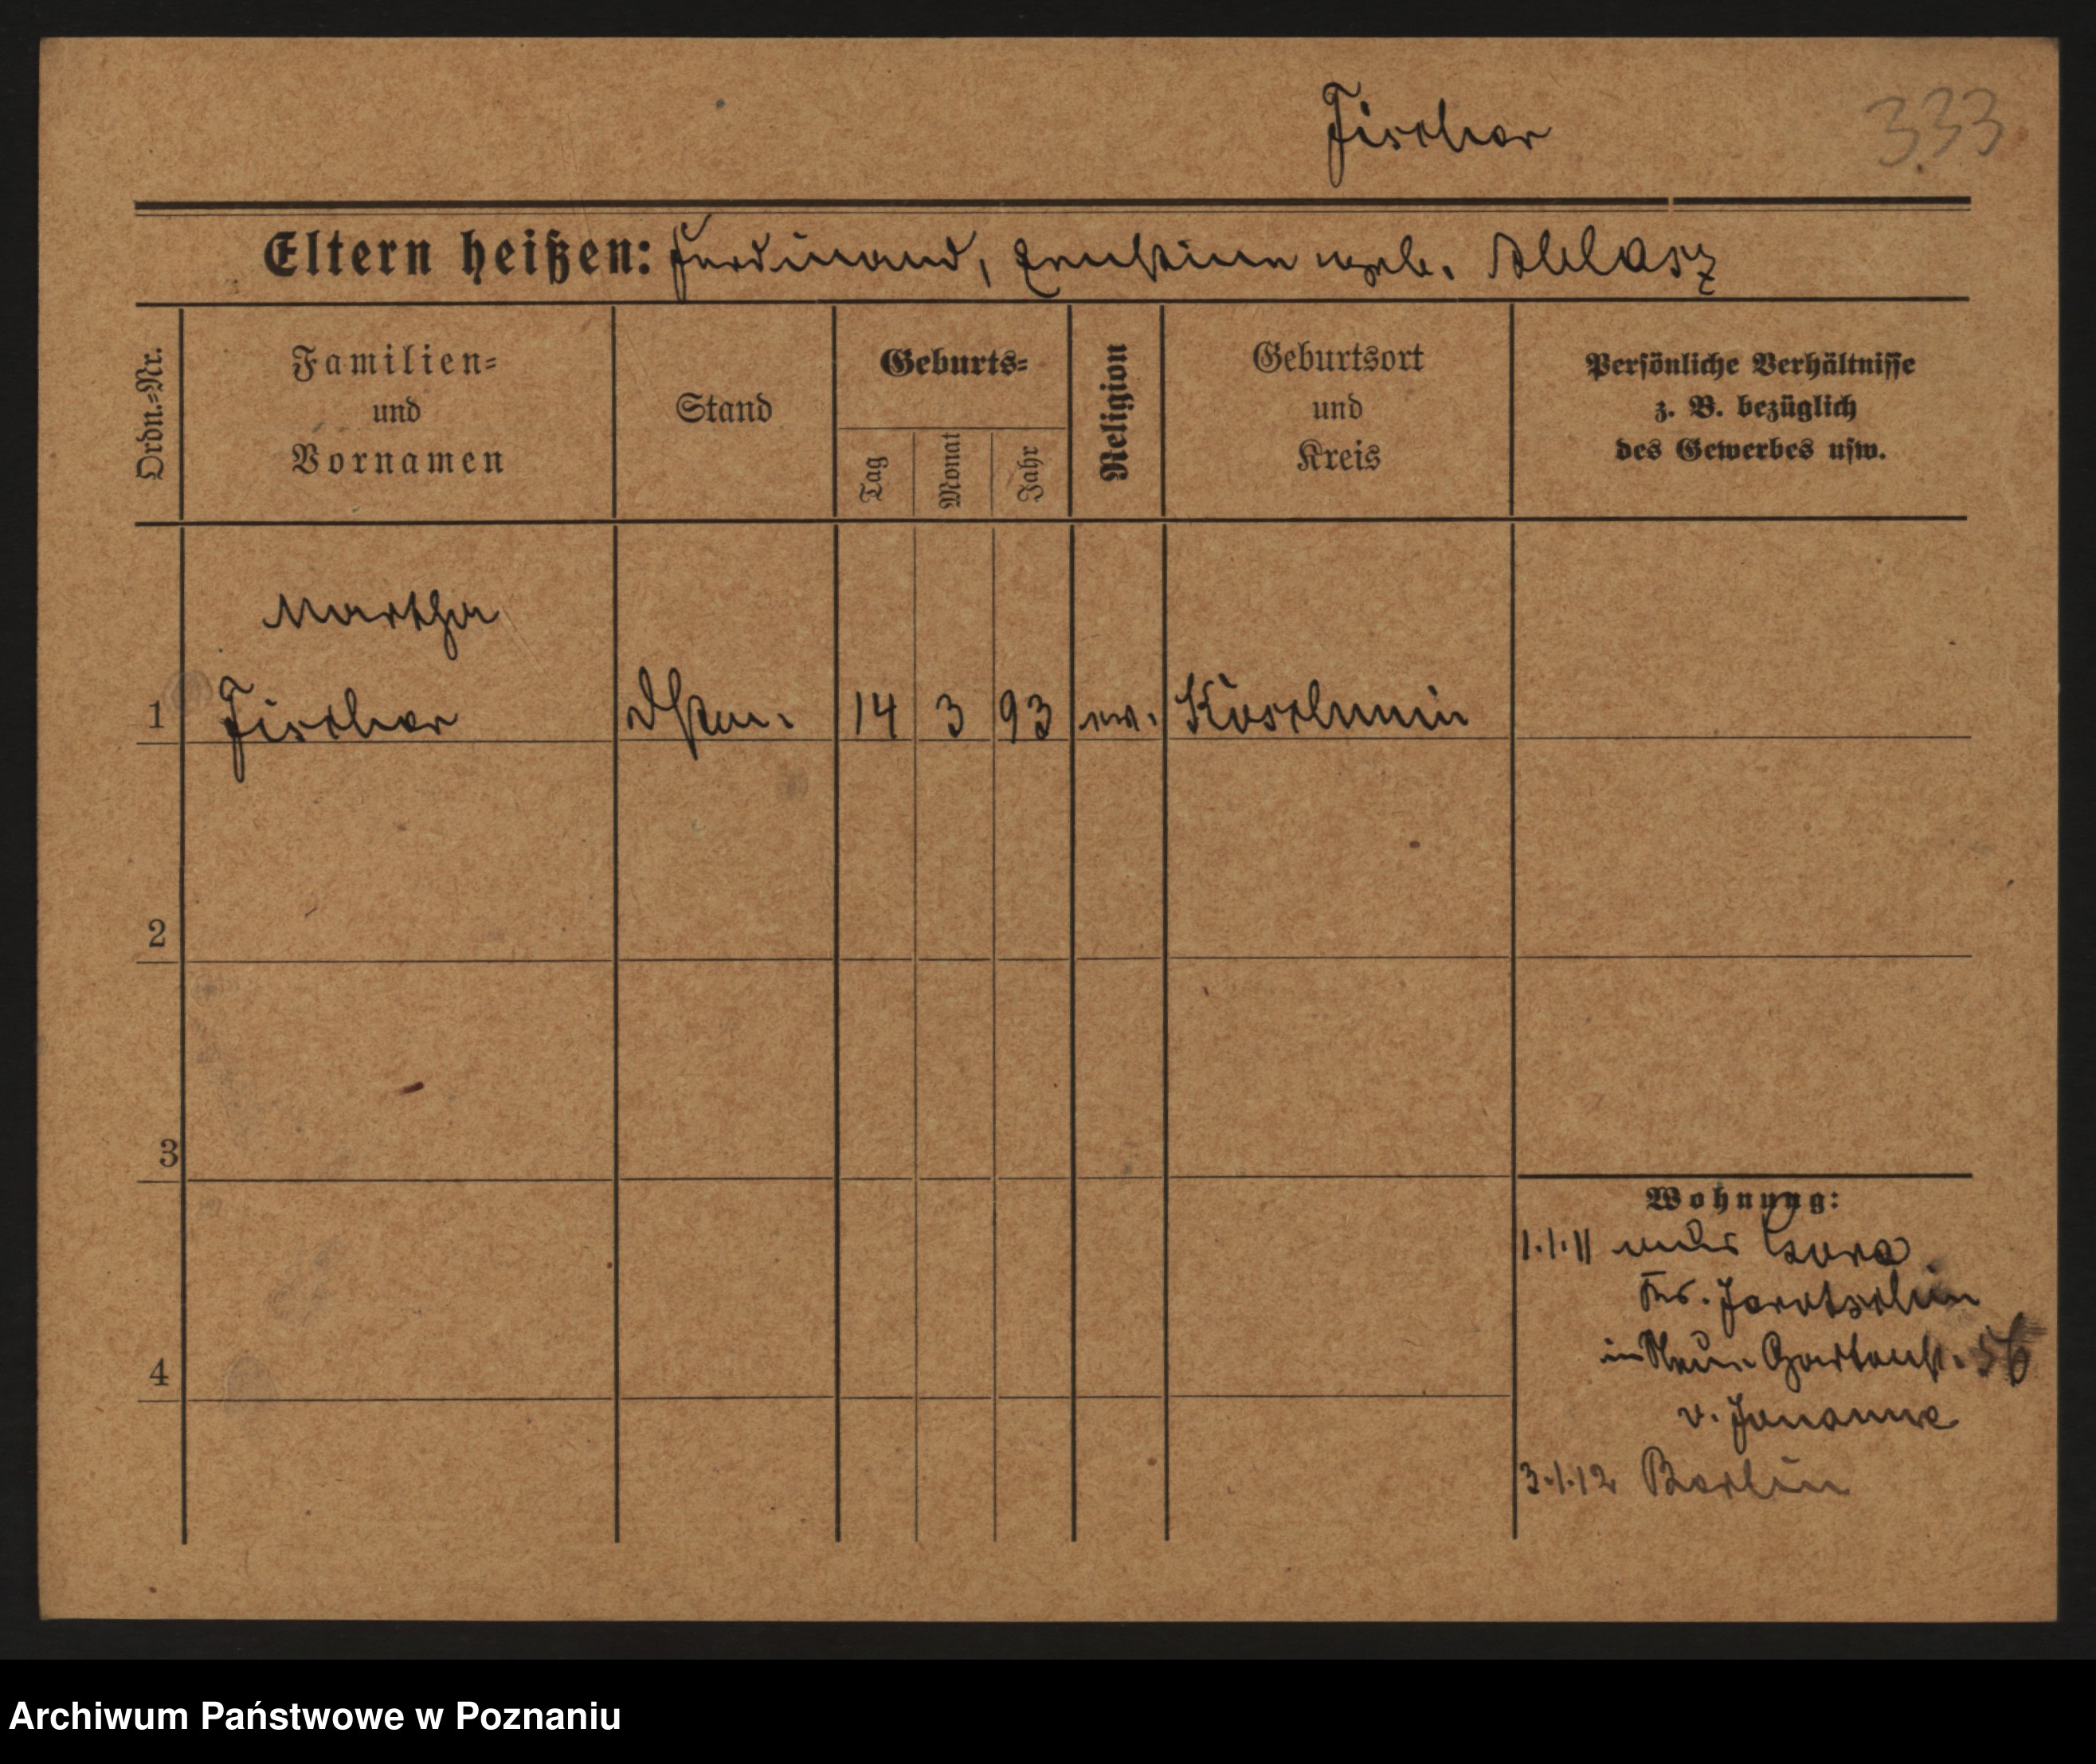 Fischer
333
Eltern heißen: Ferdinand, Ernstine geb. Schlasz
Ordn.=Nr.
Familien=
und
Vornamen
Stand
Geburts=
Tag
Monat
Jahr
Religion
Geburtsort
und
Kreis
Persönliche Verhältnisse
z. B. bezüglich
des Gewerbes usw.
Martha
1 Fischer 14 3 93 ev. Koschmin
2
3
4
Wohnung:
1.1.11 Gora
Krs. Jarotschin
in Gartenst. 56
v. Johanne
3.1.12 Berlin
Archiwum Państwowe w Poznaniu